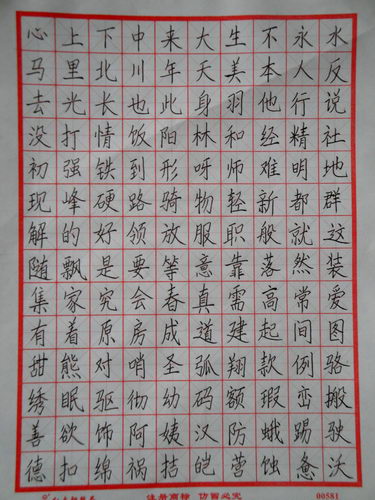 心上下中来大生不永水
马里北川年天美本人反
去光长也此身羽他行说
没打情饭阳林和经精社
初强铁到形呀师难明地
现峰硬路骑物轻新都群
解的好领放服职般就这
随飘是要等意靠落然装
集家究会春真需高常爱
有着原房成道建起间图
甜熊对哨圣弧翔款例骆
绣眠驱彻幼码额瑕峦搬
善欲饰阿姨汉防蛾踢驶
德扣绵祸拮皑营蚀惫沃
注册商标 仿冒必究 00581